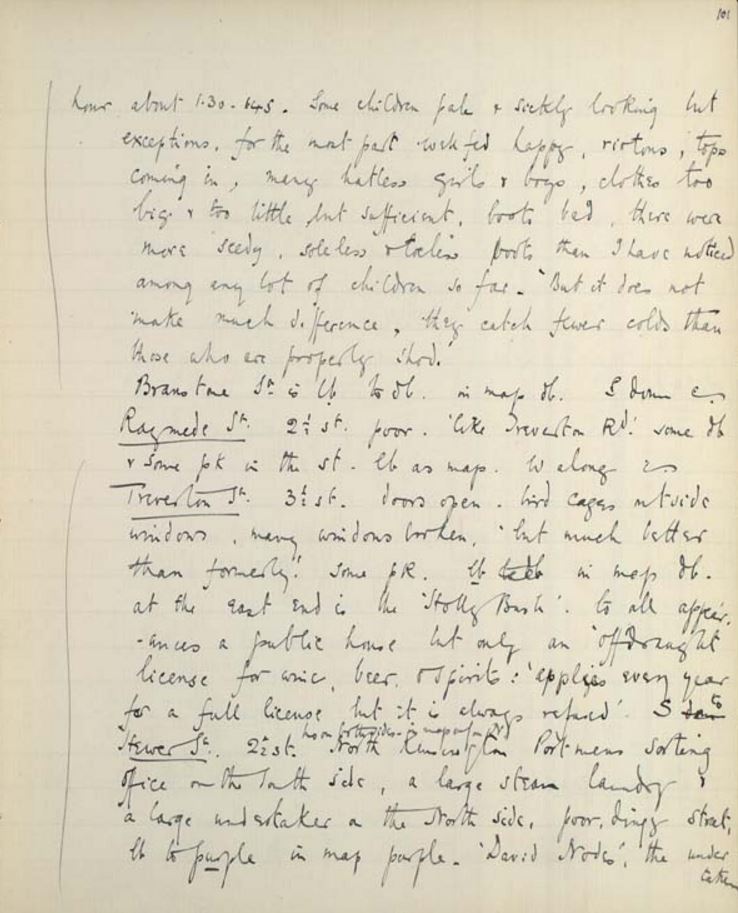 101
hour about 1.30 - 1.45. Some children pale & sickly looking but
exceptions, for the most part well fed happy, riotous, tops
coming in, many hatless girls & boys, clothes too
big & too little, but sufficient, boots bad, there were
more seedy, soleless & toeless boots than I have noticed
among any lot of children so far. "But it does not
make much difference, they catch fewer colds than
those who are properly shod."
Bramstone St. is lb to db. in map db. S down
Ragmede St. 2½ st. poor. 'like Treverton Rd.' some db
& some pk in the st. lb as map. W along
Treverton St. 3½ st. doors open. bird cages outside
windows, many windows broken, 'but much better
than formerly.' Some pk. lb in map db.
at the east end is the 'Holly Bush'. to all appear-
-ances a public house but only an 'offdraught
license for wine, beer, & spirits: 'applies every year
for a full license but it is always refused'. S to
hos on both sides
Hewer St. 2½ st. North Kensington Postmens sorting
office on the South side, a large steam laundry &
a large undertaker on the North side, poor, dingy street,
lb to purple in map purple. 'David Nodes', the under
taker